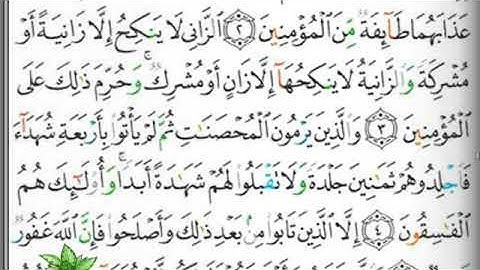 عَذَابَهُمَا طَآئِفَةٌ مِّنَ ٱلْمُؤْمِنِينَ ٢ ٱلزَّانِى لَا يَنكِحُ إِلَّا زَانِيَةً أَوْ
مُشْرِكَةً وَٱلزَّانِيَةُ لَا يَنكِحُهَآ إِلَّا زَانٍ أَوْ مُشْرِكٌ ۚ وَحُرِّمَ ذَٰلِكَ عَلَى
ٱلْمُؤْمِنِينَ ٣ وَٱلَّذِينَ يَرْمُونَ ٱلْمُحْصَنَٰتِ ثُمَّ لَمْ يَأْتُوا۟ بِأَرْبَعَةِ شُهَدَآءَ
فَٱجْلِدُوهُمْ ثَمَٰنِينَ جَلْدَةً وَلَا تَقْبَلُوا۟ لَهُمْ شَهَٰدَةً أَبَدًا ۚ وَأُو۟لَٰٓئِكَ هُمُ
ٱلْفَٰسِقُونَ ٤ إِلَّا ٱلَّذِينَ تَابُوا۟ مِنۢ بَعْدِ ذَٰلِكَ وَأَصْلَحُوا۟ فَإِنَّ ٱللَّهَ غَفُورٌ